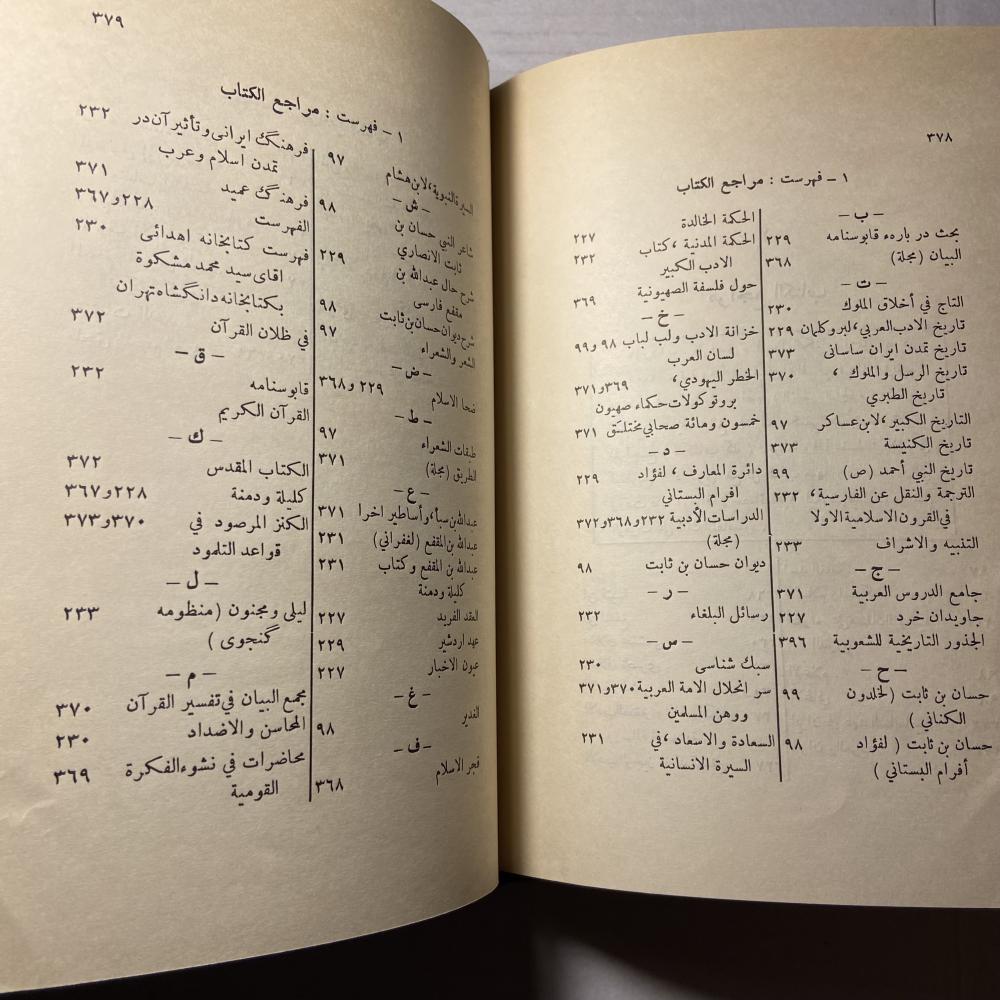 ٣٧٨
١ – فهرست : مراجع الكتاب
– ب –
بحث در بارهء قابوسنامه ٢٢٩
البيان (مجلة) ٣٦٨
– ت –
التاج في أخلاق الملوك ٢٣٠
تاريخ الادب العربي، لبروكلمان ٢٢٩
تاريخ تمدن ايران ساسانى ٣٧٣
تاريخ الرسل والملوك ، ٣٧٠
تاريخ الطبري
التاريخ الكبير، لابن عساكر ٩٧
تاريخ الكنيسة ٣٧٣
تاريخ النبي أحمد (ص) ٩٩
الترجمة والنقل عن الفارسية، ٢٣٢
في القرون الاسلامية الاولا
التنبيه والاشراف ٢٣٣
– ج –
جامع الدروس العربية ٣٧١
جاويدان خرد ٢٢٧
الجذور التاريخية للشعوبية ٣٩٦
– ح –
حسان بن ثابت (لخلدون ٩٩
الكناني )
حسان بن ثابت ( لفؤاد ٩٨
أفرام البستاني )
الحكمة الخالدة ٢٢٧
الحكمة المدنية ، كتاب ٢٣٢
الادب الكبير
حول فلسفة الصهيونية ٣٦٩
– خ –
خزانة الادب ولب لباب ٩٨ و٩٩
لسان العرب
الخطر اليهودي، ٣٦٩و٣٧١
بروتوكولات حكماء صهيون
خمسون ومائة صحابي مختلق ٣٧١
– د –
دائرة المعارف ، لفؤاد ٢٢٩
افرام البستاني
الدراسات الأدبية ٢٣٢و٣٦٨و٣٧٢
(مجلة)
ديوان حسان بن ثابت ٩٨
– ر –
رسائل البلغاء ٢٣٢
– س –
سبك شناسى ٢٣٠
سر انحلال الامة العربية ٣٧٠و٣٧١
ووهن المسلمين
السعادة والاسعاد، في ٢٣١
السيرة الانسانية
٣٧٩
١ – فهرست : مراجع الكتاب
السيرة النبوية، لابن هشام ٩٧
– ش –
شاعر النبي حسان بن ٩٨
ثابت الانصاري
شرح حال عبدالله بن ٢٢٩
مقفع فارسى
شرح ديوان حسان بن ثابت ٩٨
الشعر والشعراء ٩٧
– ض –
ضحا الاسلام ٢٢٩ و٣٦٨
– ط –
طبقات الشعراء ٩٧
الطريق (مجلة) ٣٧١
– ع –
عبدالله بن سبأ، وأساطير اخرا ٣٧١
عبدالله بن المقفع (لغفراني) ٢٣١
عبدالله بن المقفع وكتاب ٢٣١
كليلة ودمنة
العقد الفريد ٢٢٧
عهد اردشير ٢٢٩
عيون الاخبار ٢٢٧
– غ –
الغدير ٩٨
– ف –
فجر الاسلام ٣٦٨
فرهنگ ايرانى وتأثير آن در ٢٣٢
تمدن اسلام وعرب
فرهنگ عميد ٣٧١
الفهرست ٢٢٨و٣٦٧
فهرست كتابخانه اهدائى ٢٣٠
اقاى سيد محمد مشكوة
بكتابخانه دانگشاه تهران
في ظلال القرآن ٣٧٢
– ق –
قابوسنامه ٢٣٢
القرآن الكريم
– ك –
الكتاب المقدس ٣٧٢
كليلة ودمنة ٢٢٨و٣٦٧
الكنز المرصود في ٣٧٠و٣٧٣
قواعد التلمود
– ل –
ليلى ومجنون (منظومه ٢٣٣
گنجوى )
– م –
مجمع البيان في تفسير القرآن ٣٧٠
المحاسن والاضداد ٢٣٠
محاضرات في نشوء الفكرة ٣٦٩
القومية